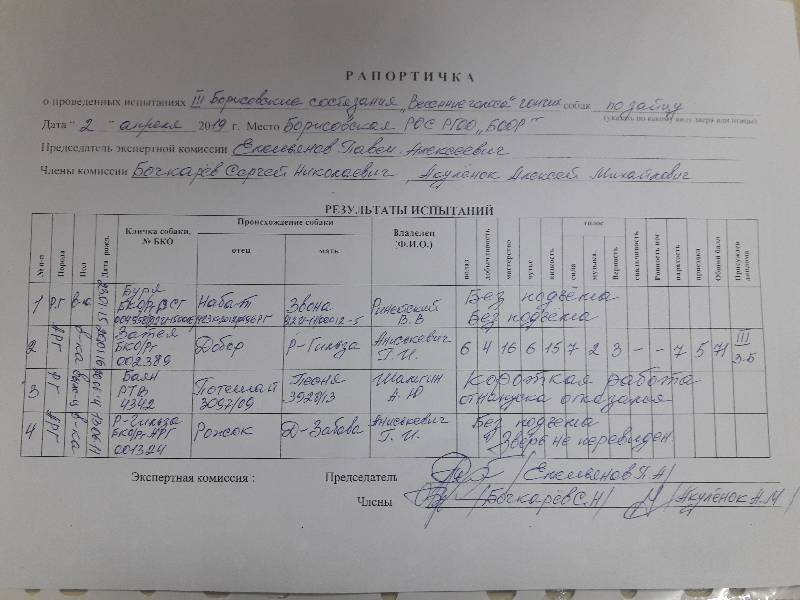 РАПОРТИЧКА
о проведенных испытаниях III Борисовские состязания "Весенние голоса" гончих собак по зайцу
(указать по какому виду зверя или птицы)
Дата " 2 " апреля 2019 г. Место Борисовская РОС РГОО "БООР"
Председатель экспертной комиссии Емельянов Павел Алексеевич
Члены комиссии Бочкарёв Сергей Николаевич, Акулёнок Алексей Михайлович
РЕЗУЛЬТАТЫ ИСПЫТАНИЙ
№ п/п Порода Пол Дата рожд. Кличка собаки, № БКО Происхождение собаки отец мать Владелец (Ф.И.О.) полаз добычливость мастерство чутье вязкость голос сила музыка. Верность свальчивость Ровность ног паратость приездка Общий балл Присужден диплом
1 РГ в-ка Буря Набат Звона Ринейский В.В Без подъёма
Без подъёма
2 АРГ в-ка Затея БКО/рг 002389 Добор Р-Гильза Анисъкевич Г.И. 6 4 16 6 15 7 2 3 – – 7 5 71 III З-Б
3 РГ Баян РТФ 4342 Потешай 3097/09 Песня 3928/13 Шалыгин А.Ю Короткая работа
от напуска отказался
4 АРГ в-ка Р-Гильза БКО/рг-АРГ 001324 Рожок Д-Забава Анисъкевич Г.И. Без подъёма
Зверь не перевиден
Экспертная комиссия : Председатель /Емельянов П.А/
Члены /Бочкарёв С.Н/ /Акулёнок А.М